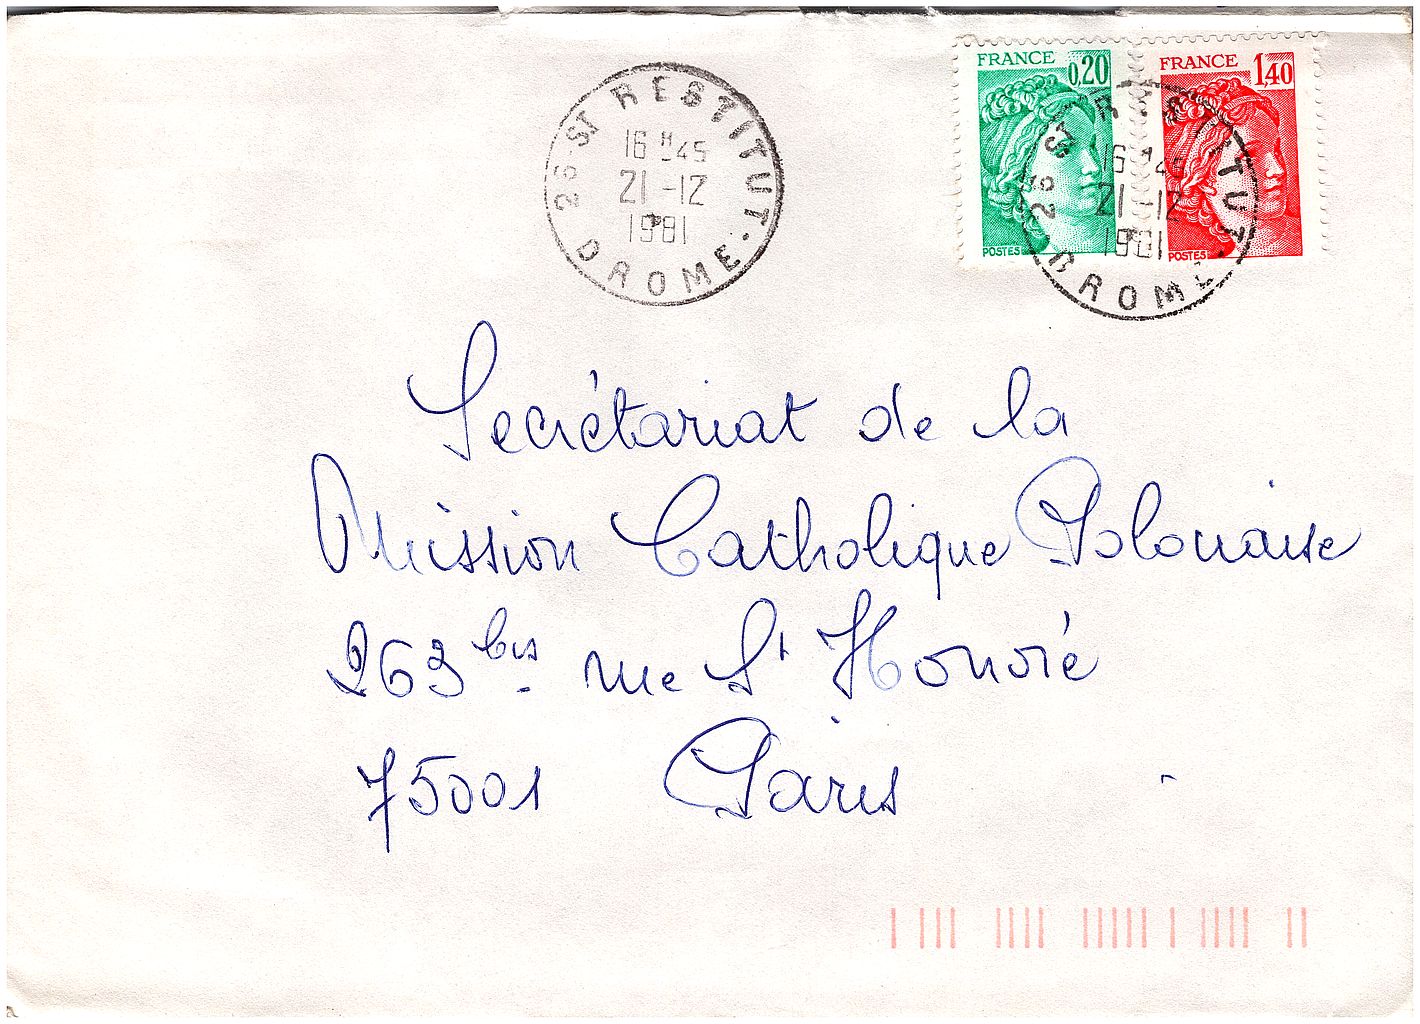 26 ST RESTITUT
16H45
21-12
1981
DROME
FRANCE
0,20
POSTES
FRANCE
1,40
POSTES
26 ST RESTITUT
16H45
21-12
1981
DROME
Secrétariat de la
Mission Catholique Polonaise
263 bis rue St Honoré
75001 Paris